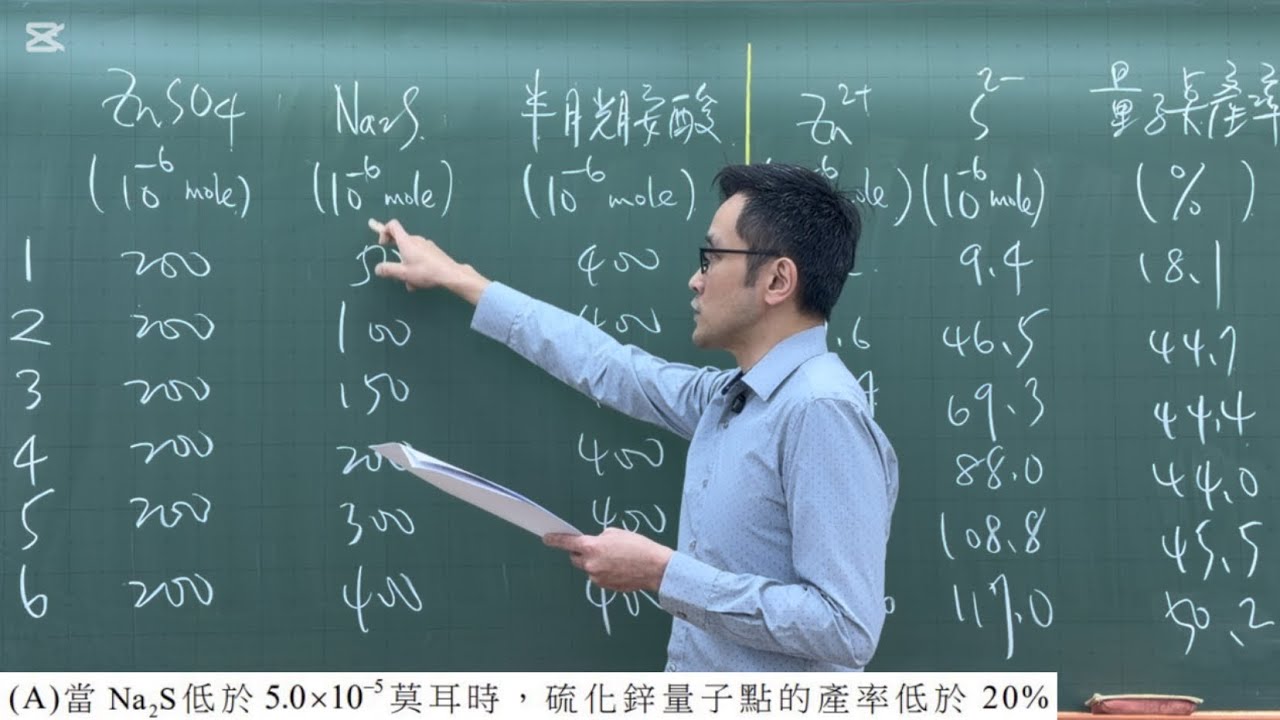 ZnSO4 Na2S 半胱胺酸 Zn2+ S2- 量子点產率
(10-6 mole) (10-6 mole) (10-6 mole) -6 ole) (10-6 mole) (%)
1 200 50 400 9.4 18.1
2 200 100 400 .6 46.5 44.7
3 200 150 69.3 44.4
4 200 200 400 88.0 44.0
5 200 300 400 108.8 45.5
6 200 400 400 117.0 50.2
(A)當 Na2S低於 5.0×10–5莫耳時，硫化鋅量子點的產率低於 20%